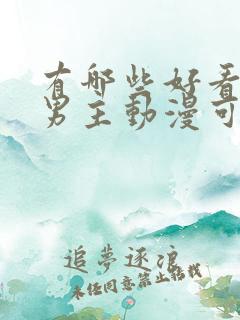 有哪些好看
男主動漫可
追夢逐浪
未经同意禁止转载